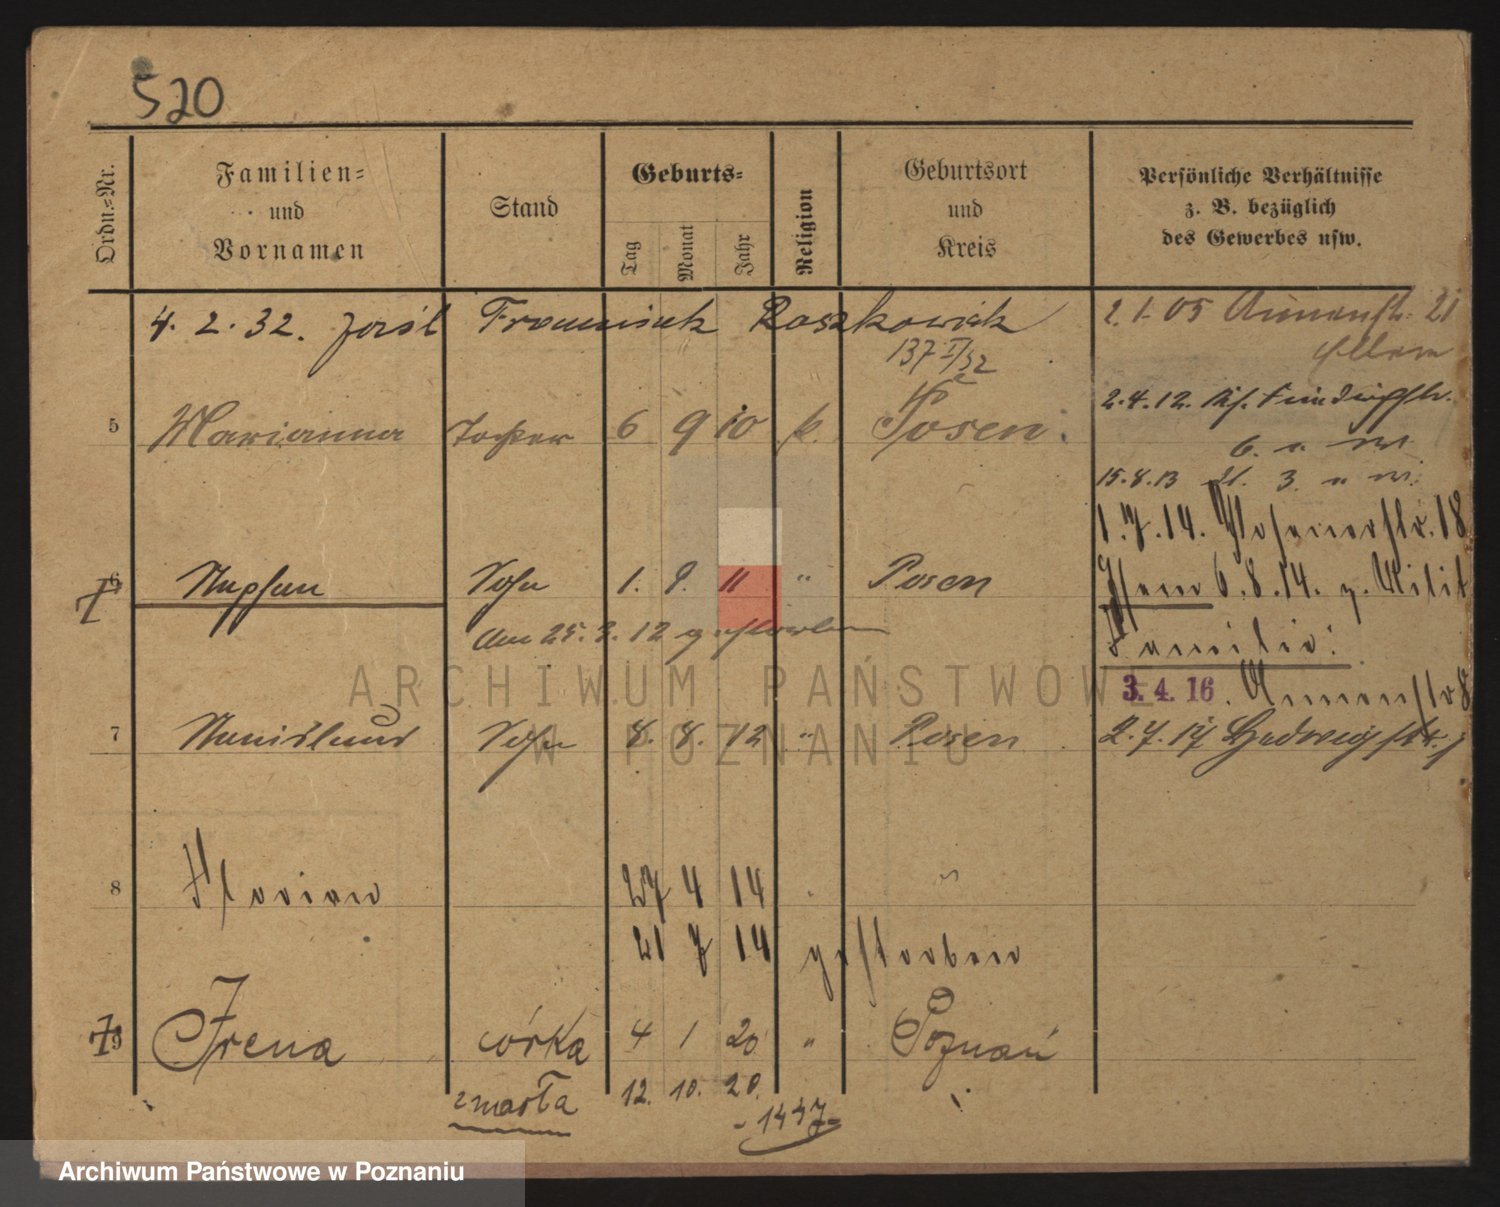 520
Ordn.=Nr.
Familien=
und
Vornamen
Stand
Geburts=
Tag
Monat
Jahr
Religion
Geburtsort
und
Kreis
Persönliche Verhältnisse
z. B. bezüglich
des Gewerbes usw.
4. 2. 32. Franciszek Roszkowiak
137 I/32
2.1.05 Annenstr. 21
Eltern
5 Marianna Tochter 6 9 10 k. Posen
2.4.12.
6.
15.8.13 3.
1.7.14. Posenerstr. 18
6 Stephan Sohn 1. 9. 11 " Posen
6.8.14. z. Milit
Am 25. 3. 12 gestorben
Familie:
3. 4. 16. Annenstr 8
7 Stanislaus Sohn 8. 8. 12 " Posen
2.7.17 Hedwigstr.
8 Florian 27 4 14 "
21 7 14 gestorben
9 Irena córka 4 1 20 " Poznań
zmarła 12. 10. 20.
- 1447 -
ARCHIWUM PAŃSTWOWE
W POZNANIU
Archiwum Państwowe w Poznaniu